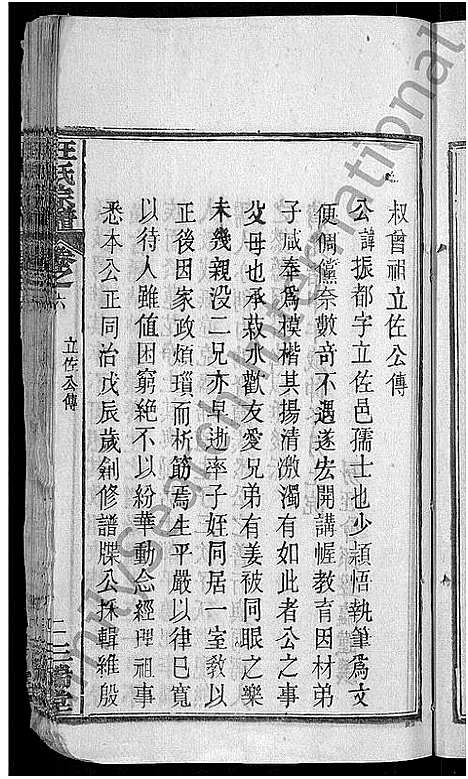 叔曾祖立佐公傳
公諱振都字立佐邑孺士也少穎悟執筆爲文
便倜儻奈數竒不遇遂宏開講幄教育因材弟
子咸奉爲模楷其揚清激濁有如此者公之事
父母也承菽水歡友愛兄弟有姜被同眠之樂
未幾親没二兄亦早逝率子姪同居一室教以
正後因家政煩瑣而析箸焉生平嚴以律已寬
以待人雖值困窮絶不以紛華動念經理祖事
悉本公正同治戊辰歲創修譜牒公採輯維殷
汪氏宗譜
卷之六
立佐公傳
二